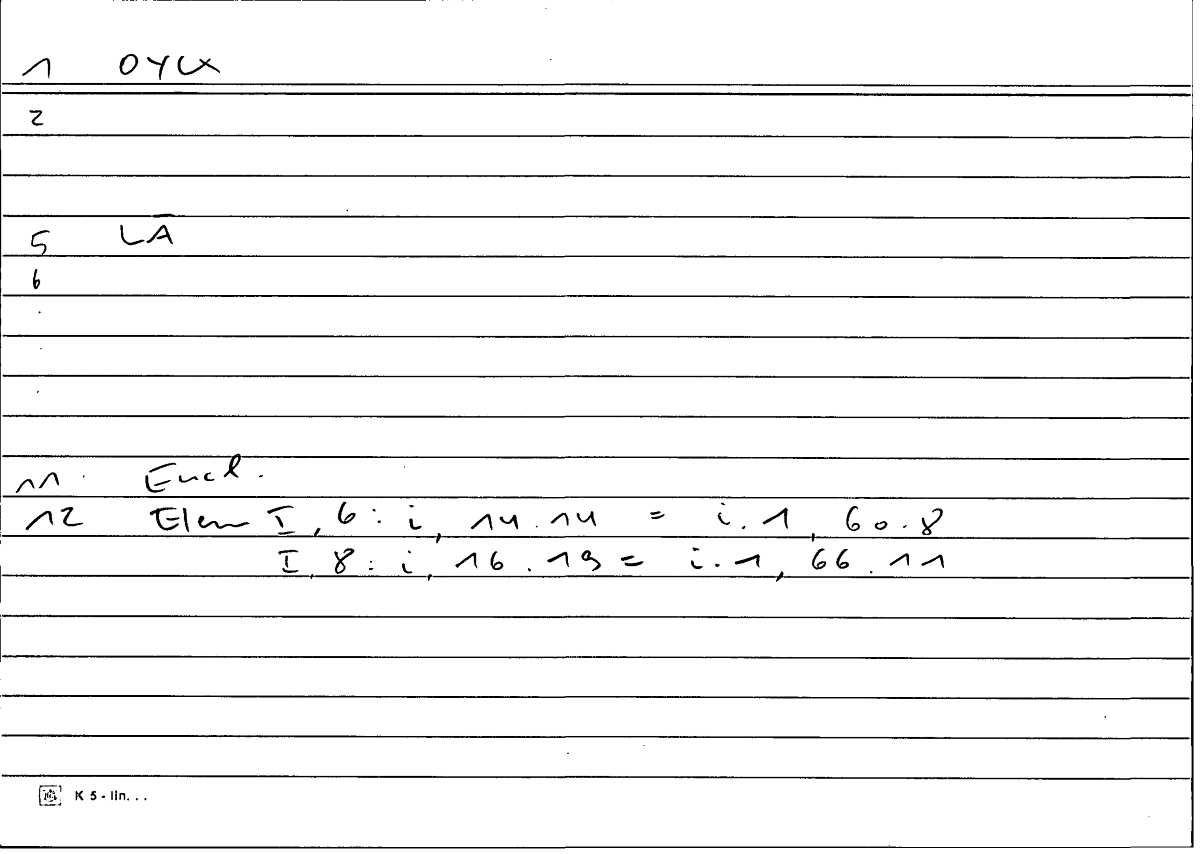 1 OYK
2
5 LĀ
6
11. Eucl.
12 Elem I, 6: i, 14.14 = i.1, 60.8
I, 8: i, 16.19 = i.1, 66.11
K 5 - lin. . .